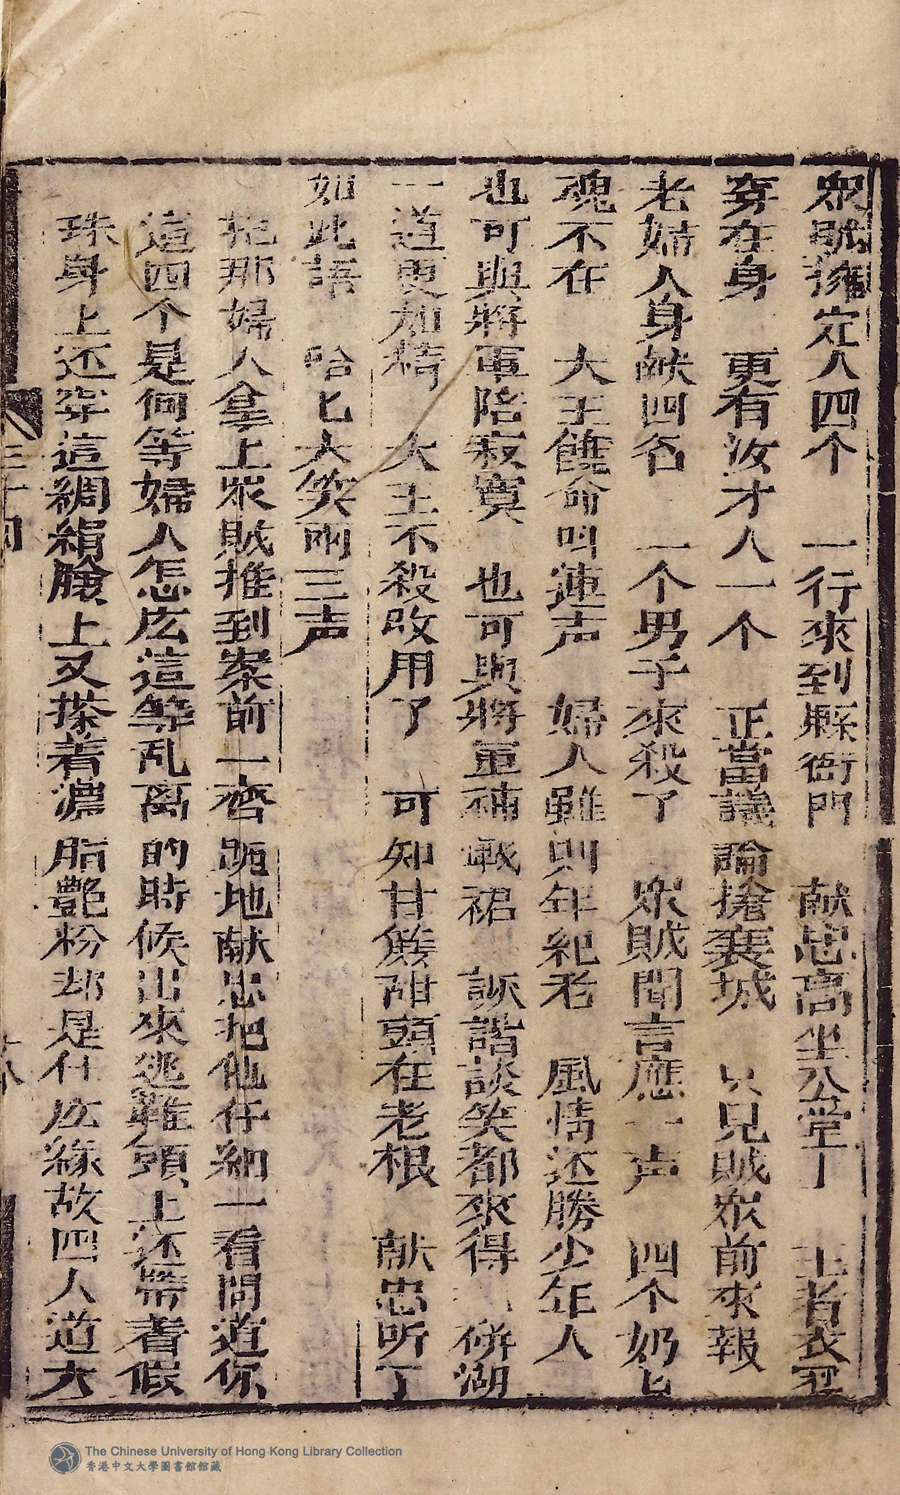 眾賊擁定人四个　一行來到縣衙門　献忠高坐公堂上　王者衣冠
穿在身　更有汝才人一个　正當議論搶襄城　只見賊眾前來報
老婦人身献四名　一个男子來殺了　眾賊聞言應一声　四个奶匕
魂不在　大王饒命叫連声　婦人雖則年紀老　風情还勝少年人
也可與將軍陪寂寞　也可與將軍補戰裙　詼諧談笑都來得　併湖
一道更加精　大王不殺改用了　可知甘蔗甜頭在老根　献忠听了
如此語　哈匕大笑兩三声
把那婦人拿上眾賊推到案前一齊跪地献忠把他仔細一看問道你
這四个是何等婦人怎庅這等乱离的時候出來逃難頭上还帶着假
珠身上还穿這綢絹臉上又搽着濃脂艷粉却是什庅緣故四人道大
三十四
The Chinese University of Hong Kong Library Collection
香港中文大學圖書館館藏